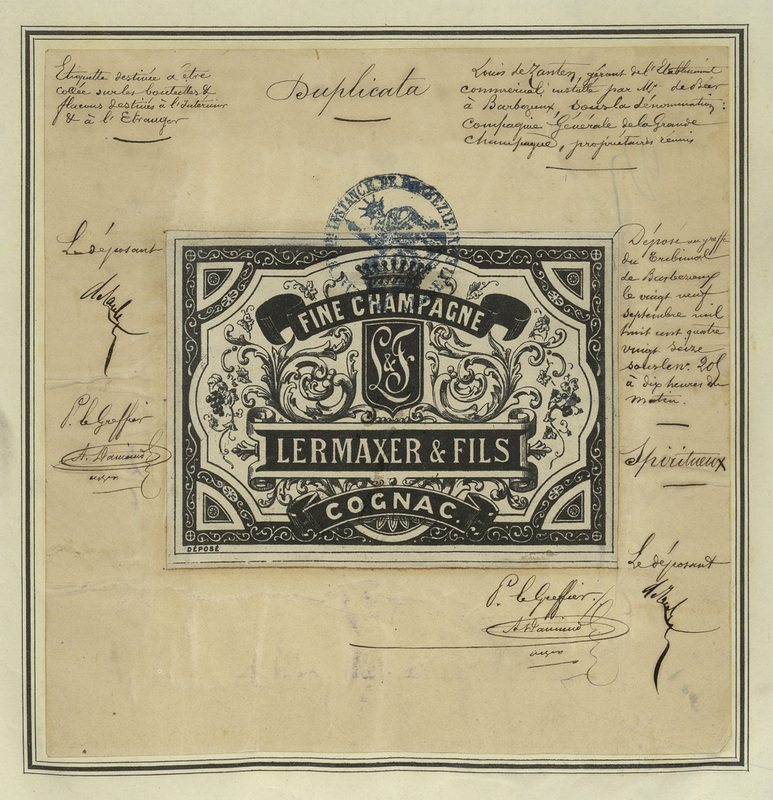 Etiquette destinée a être
collée sur les bouteilles &
flacons destinés à l'Interieur
& à l'Etranger
Duplicata
Louis de Zanten, gérant de l'Etablissement
commercial, installé par Mr de Béer
à Barbezieux, sous la dénomination:
Compagnie Générale de la Grande
Champagne, propriétaires réunis
INSTANCE DE BARBEZIEUX
Le déposant
P. le Greffier
FINE CHAMPAGNE
L&F
LERMAXER & FILS
COGNAC.
DÉPOSÉ
Déposé au greffe
du Tribunal
de Barbezieux
le vingt neuf
septembre mil
huit cent quatre
vingt seize
sous le no. 205
à dix heures du
matin.
Spiritueux
Le déposant
P. le Greffier.